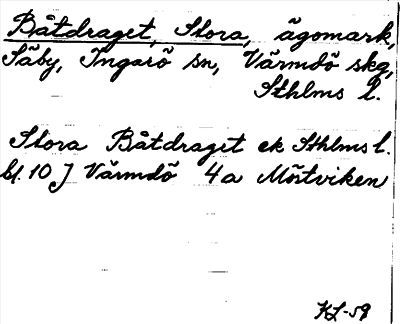 Båtdraget, Stora, ägomark,
Säby, Ingarö sn, Värmdö skg,
Sthlms l.
Stora Båtdraget ek Sthlms l.
bl. 10 J Värmdö 4a Mörtviken
KL-59